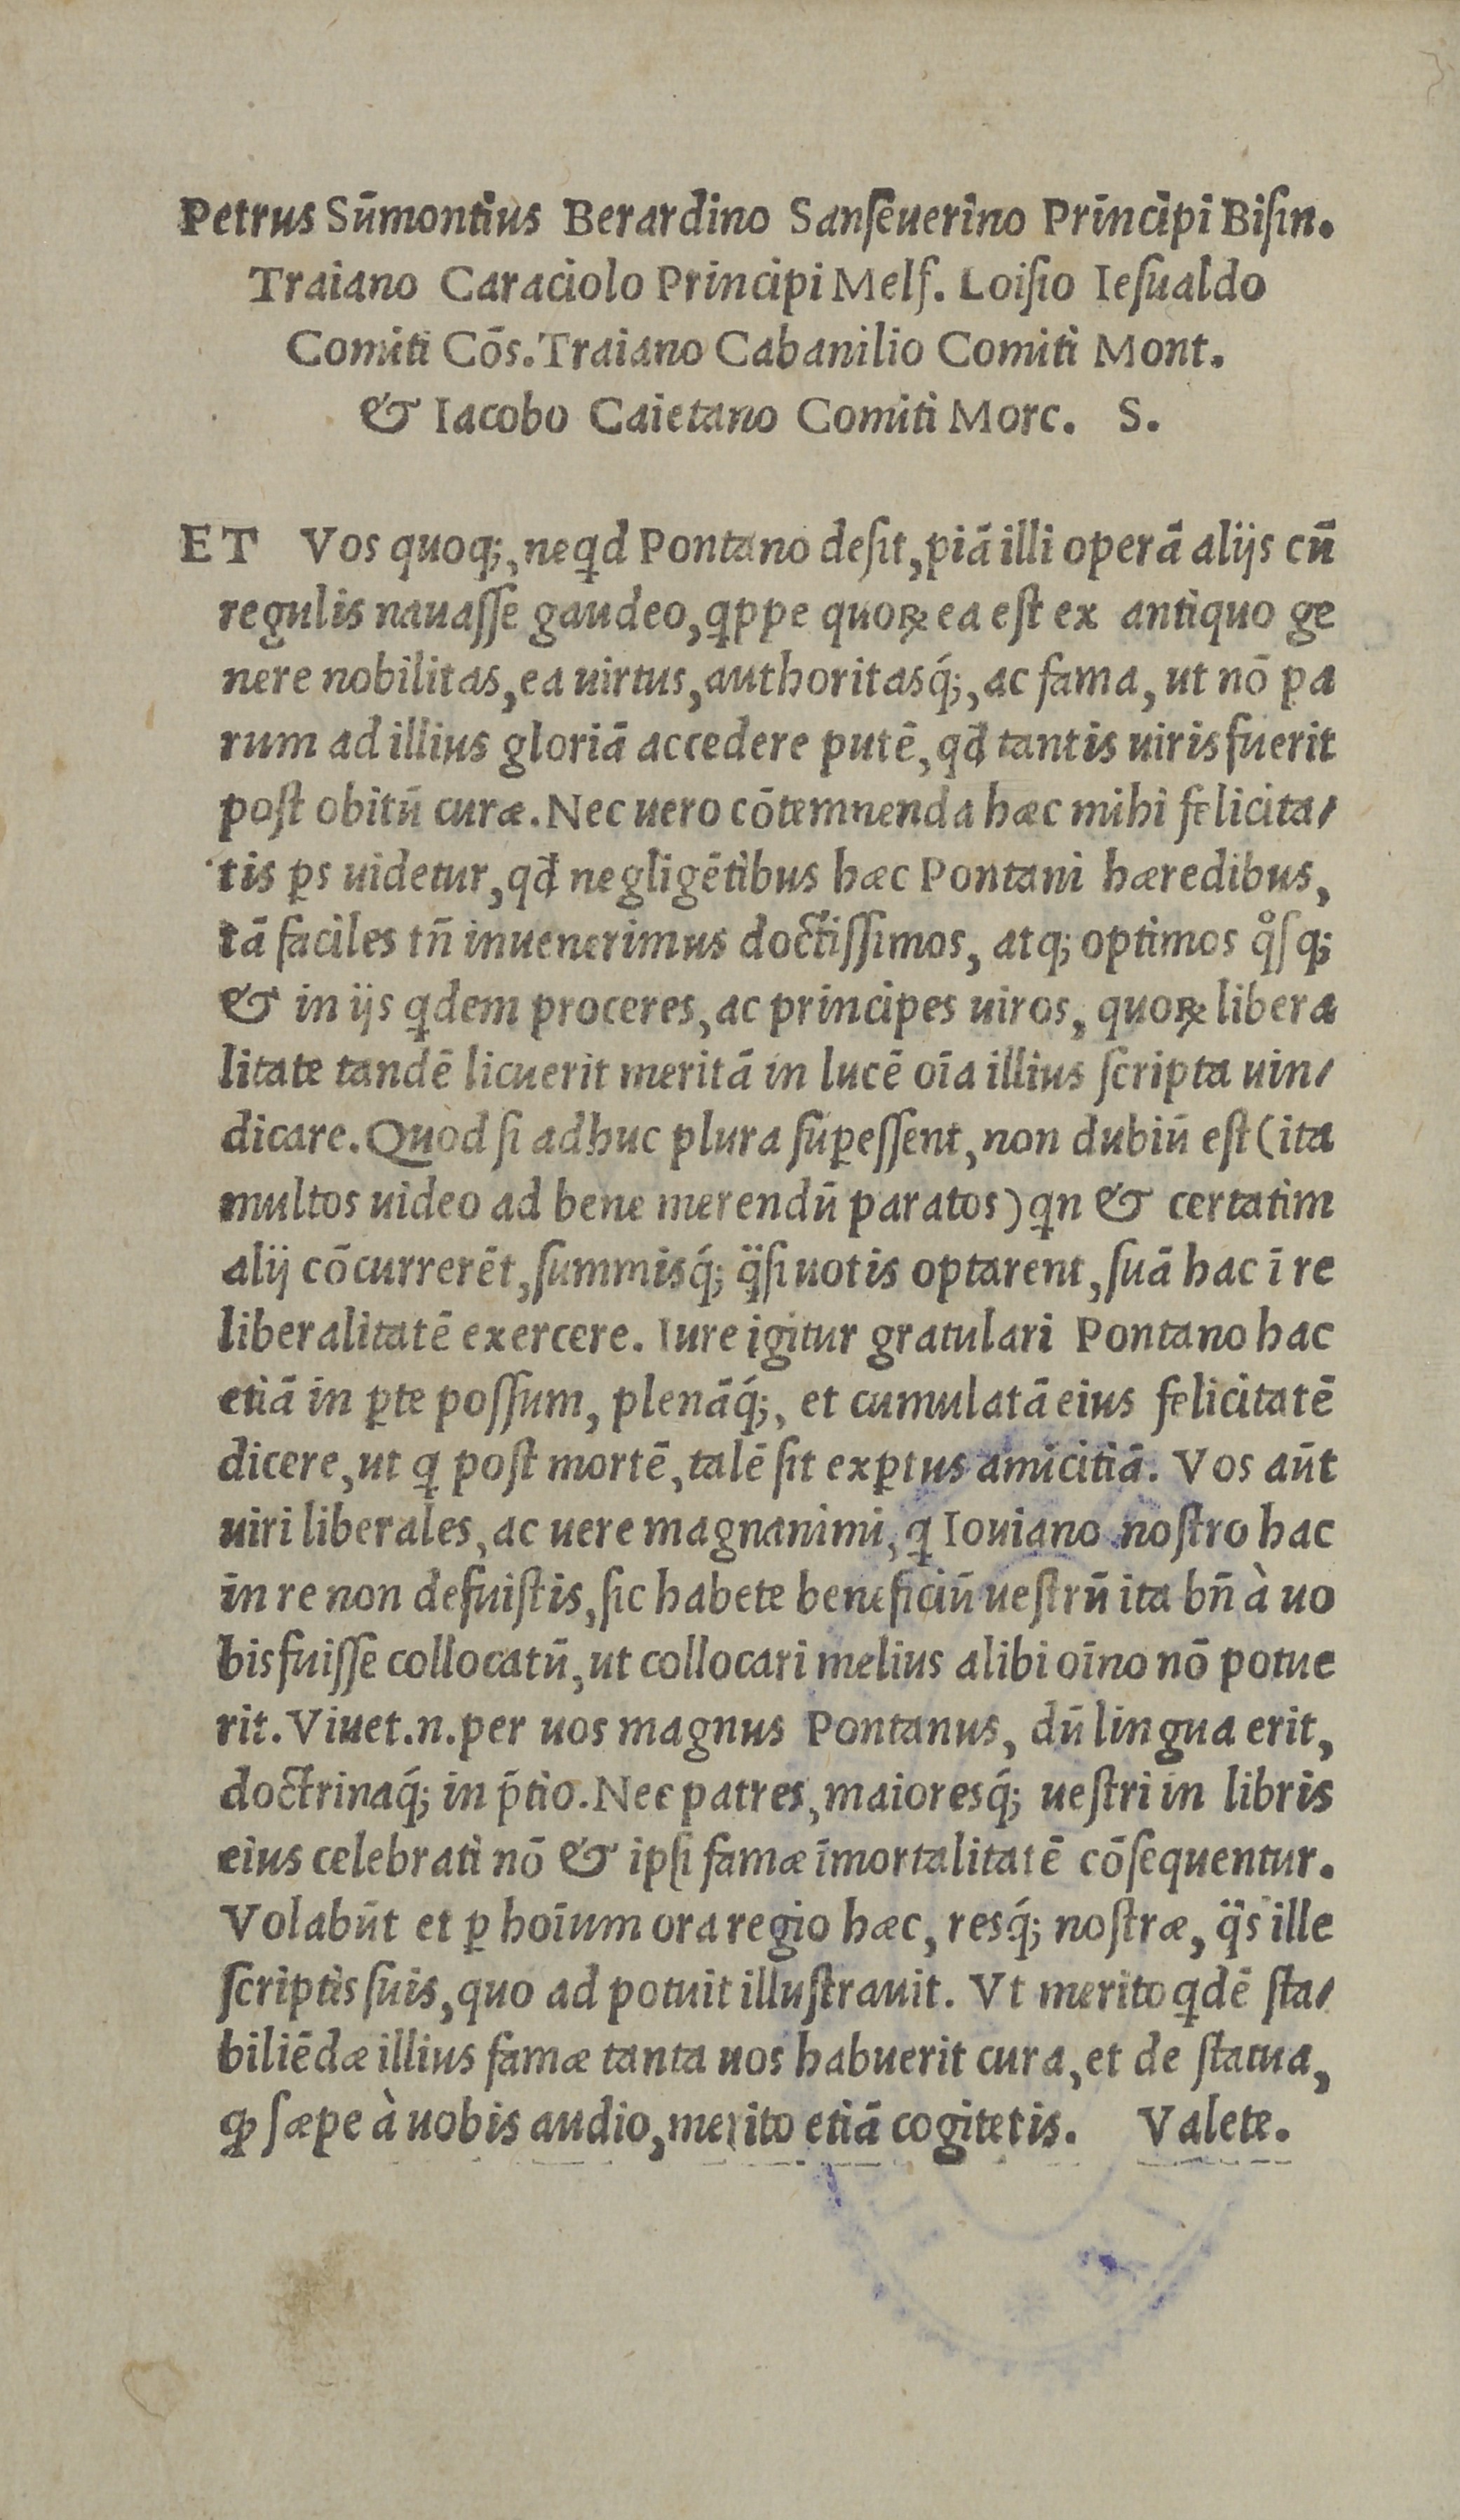 Petrus Sūmontius Berardino Sanſeuerino Principi Biſin.
Traiano Caraciolo Principi Melf. Loiſio Ieſualdo
Comiti Cōs. Traiano Cabanilio Comiti Mont.
& Iacobo Caietano Comiti Morc. S.
ET Vos quoq;, neqd Pontano deſit, piā illi operā alijs cū
regulis nauaſſe gaudeo, qppe quoꝝ ea eſt ex antiquo ge
nere nobilitas, ea uirtus, authoritasq́;, ac fama, ut nō pa
rum ad illius gloriā accedere putē, qđ tantis uiris fuerit
poſt obitū curæ. Nec uero cōtemnenda hæc mihi felicita/
tis ꝑs uidetur, qđ negligētibus hæc Pontani hæredibus,
tā faciles tn̄ inuenerimus doctiſſimos, atq; optimos qͦſq;
& in ijs qdem proceres, ac principes uiros, quoꝝ libera
litate tandē licuerit meritā in lucē oīa illius ſcripta uin/
dicare. Quod ſi adhuc plura ſuꝑeſſent, non dubiū eſt (ita
multos uideo ad bene merendū paratos) qn & certatim
alij cōcurrerēt, ſummisq́; q̈ſi uotis optarent, ſuā hac ī re
liberalitatē exercere. Iure igitur gratulari Pontano hac
etiā in ꝑte poſſum, plenāq́;, et cumulatā eius felicitatē
dicere, ut q poſt mortē, talē ſit exꝑtus amicitiā. Vos aūt
uiri liberales, ac uere magnanimi, q Iouiano noſtro hac
in re non defuiſtis, ſic habete beneficiū ueſtrū ita bn̄ à uo
bis fuiſſe collocatū, ut collocari melius alibi oīno nō potue
rit. Viuet .n. per uos magnus Pontanus, dū lingua erit,
doctrinaq́; in p̄tio. Nec patres, maioresq́; ueſtri in libris
eius celebrati nō & ipſi famæ īmortalitatē cōſequentur.
Volabūt et ꝑ hoīum ora regio hæc, resq́; noſtræ, q̈s ille
ſcriptis ſuis, quo ad potuit illuſtrauit. Vt merito qdē ſta/
biliēdæ illius famæ tanta uos habuerit cura, et de ſtatua,
ꝙ ſæpe à uobis audio, merito etiā cogitetis. Valete.